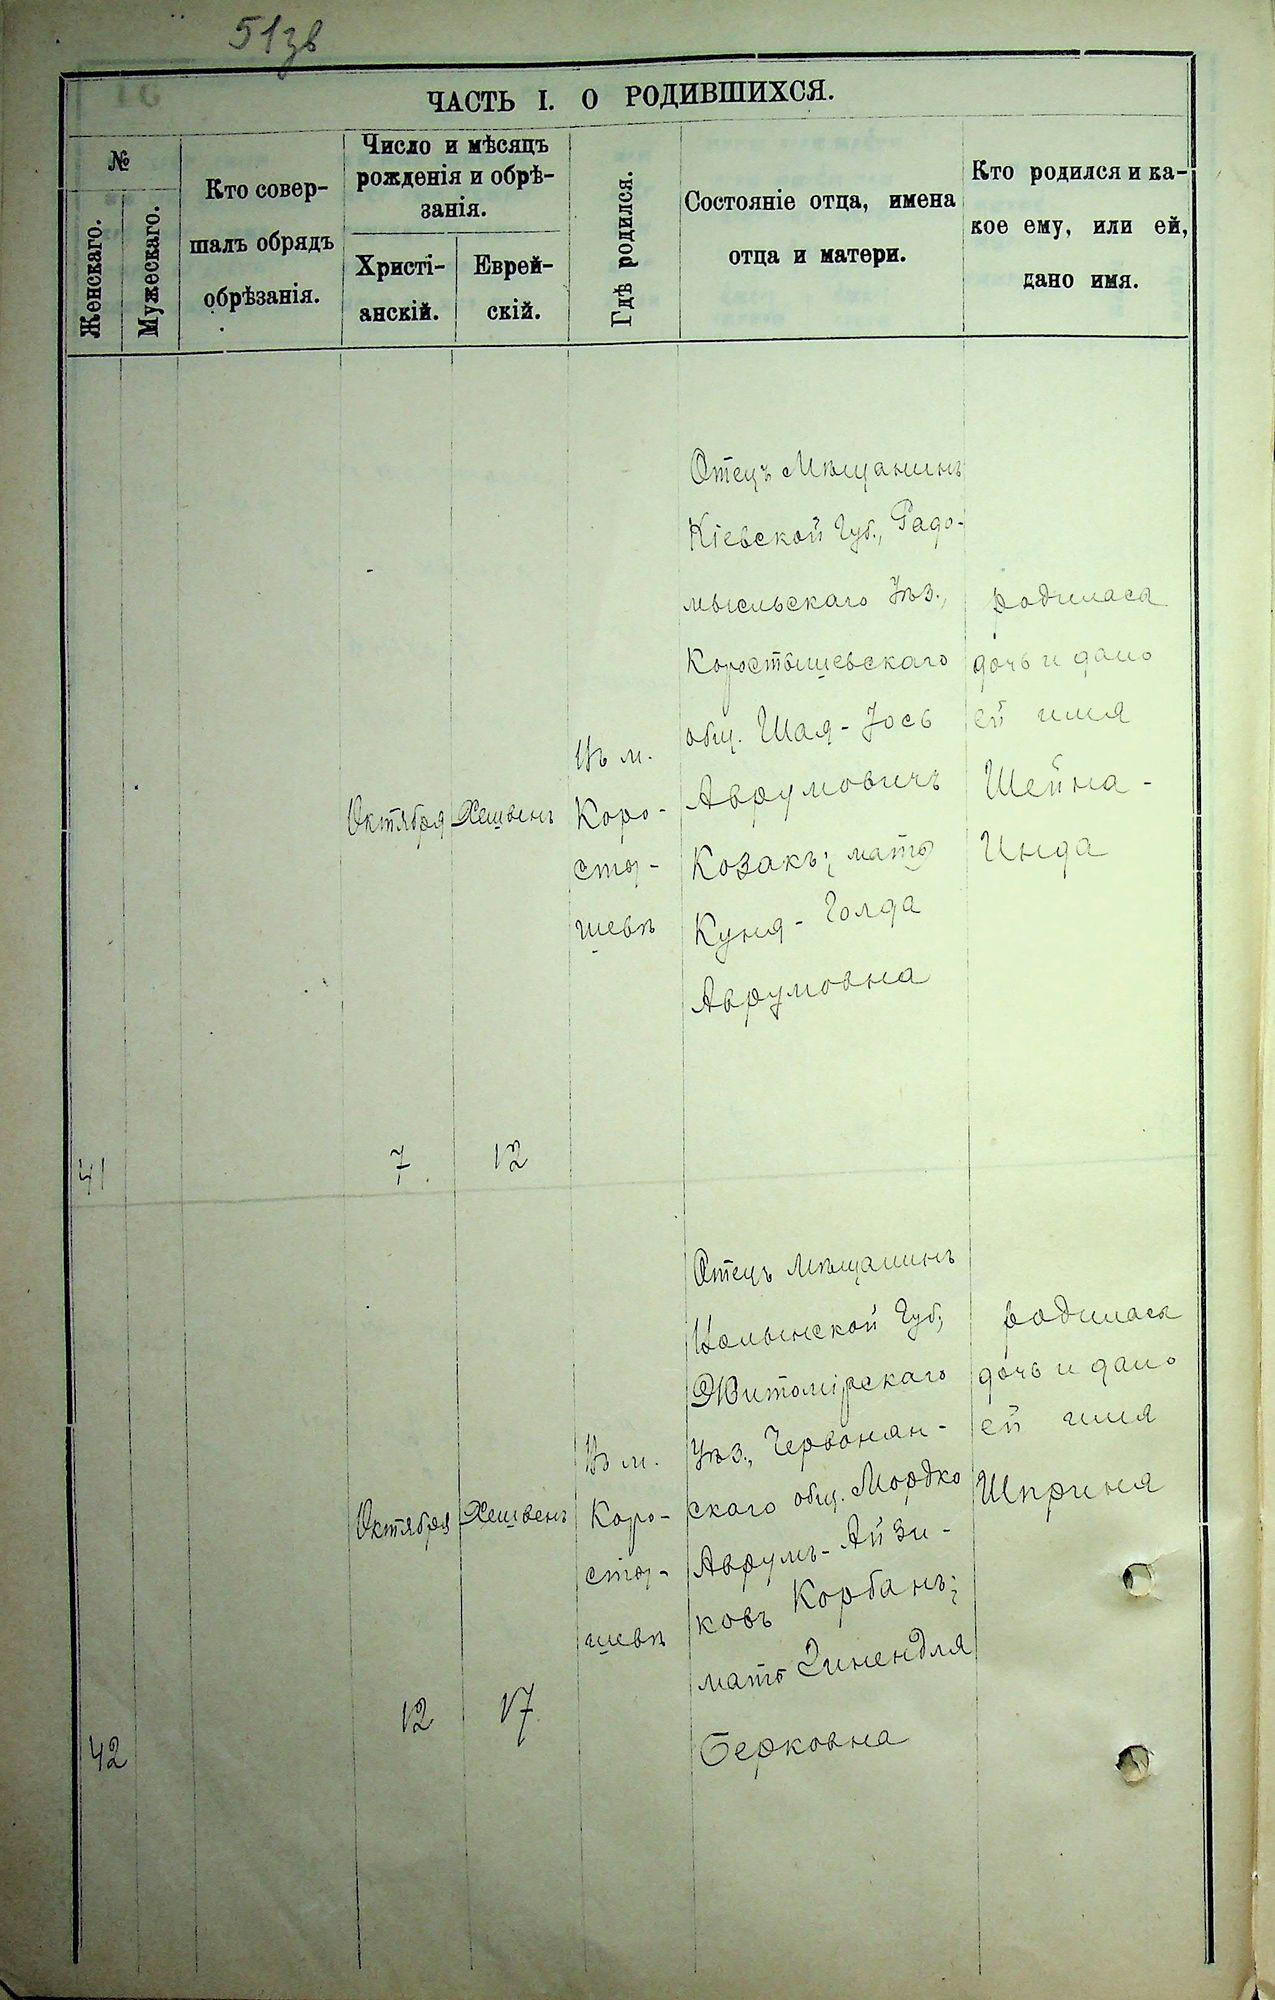 51зв
ЧАСТЬ I. О РОДИВШИХСЯ.
№
Женскаго.
Мужескаго.
Кто совер-
шалъ обрядъ
обрѣзанія.
Число и мѣсяцъ
рожденія и обрѣ-
занія.
Христі-
анскій.
Еврей-
скій.
Гдѣ родился.
Состояніе отца, имена
отца и матери.
Кто родился и ка-
кое ему, или ей,
дано имя.
41
Октября
7
Хешвенъ
12
Въ м.
Коро-
сты-
шевѣ
Отецъ Мѣщанинъ
Кіевской Губ., Радо-
мысльскаго Уѣз.,
Коростышевскаго
общ. Шая-Іось
Аврумовичъ
Козакъ; мать
Куня-Голда
Аврумовна
родилась
дочь и дано
ей имя
Шейна-
Инда
42
Октября
12
Хешвенъ
17
Въ м.
Коро-
сты-
шевѣ
Отецъ Мѣщанинъ
Волынской Губ.,
Житомірскаго
Уѣз., Червонян-
скаго общ. Мордко
Аврумъ-Айзи-
ковъ Корбанъ;
мать
Берковна
родилась
дочь и дано
ей имя
Шприня